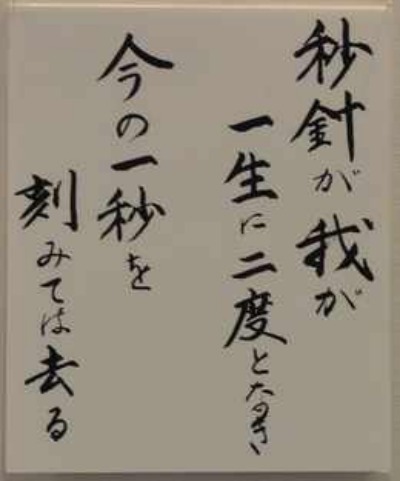 秒針が我が
一生に二度となき
今の一秒を
刻みては去る